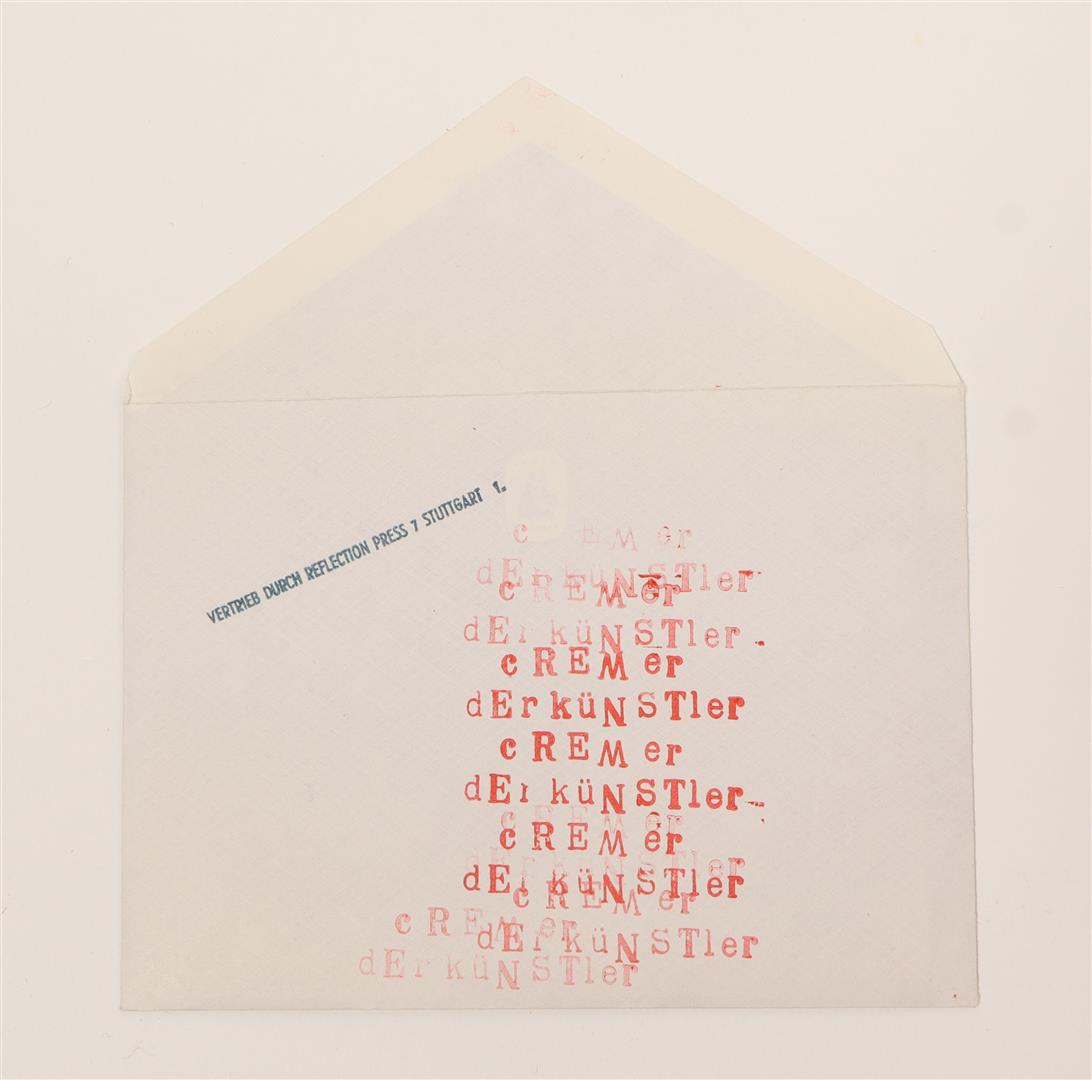 VERTRIEB DURCH REFLECTION PRESS 7 STUTTGART 1.
c EMer
dEr küNSTler
cREMer
dEr küNSTler
cREMer
dEr küNSTler
cREMer
dEr küNSTler
cREMer
cREMer
dEr küNSTler
dEr küNSTler
cREMer
cREMer
dEr küNSTler
dEr küNSTler